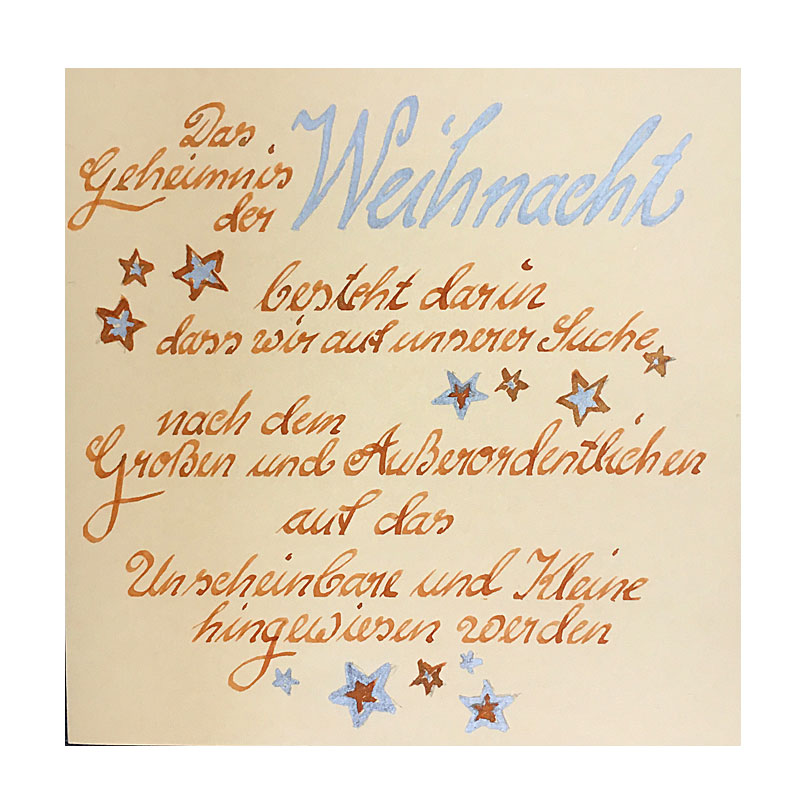 Das
Geheimnis
der Weihnacht
besteht darin
dass wir auf unserer Suche
nach dem
Großen und Außerordentlichen
auf das
Unscheinbare und Kleine
hingewiesen werden